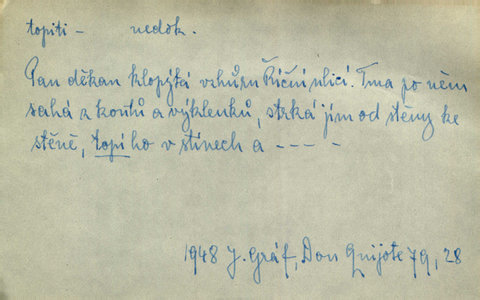 topiti – nedok.
Pan děkan klopýtá vzhůru Říční ulicí. Tma po něm
sahá z koutů a výklenků, strká jím od stěny ke
stěně, topí ho v stínech a – – – –
1948 J. Gráf, Don Quijote 79, 28